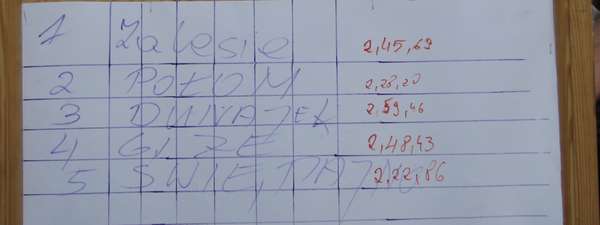 1 Zalesie 2,45,69
2 POŁOM 2,28,20
3 DUNAJEK 2,59,46
4 GIŻE 2,48,43
5 ŚWIĘTAJNO 2,22,86